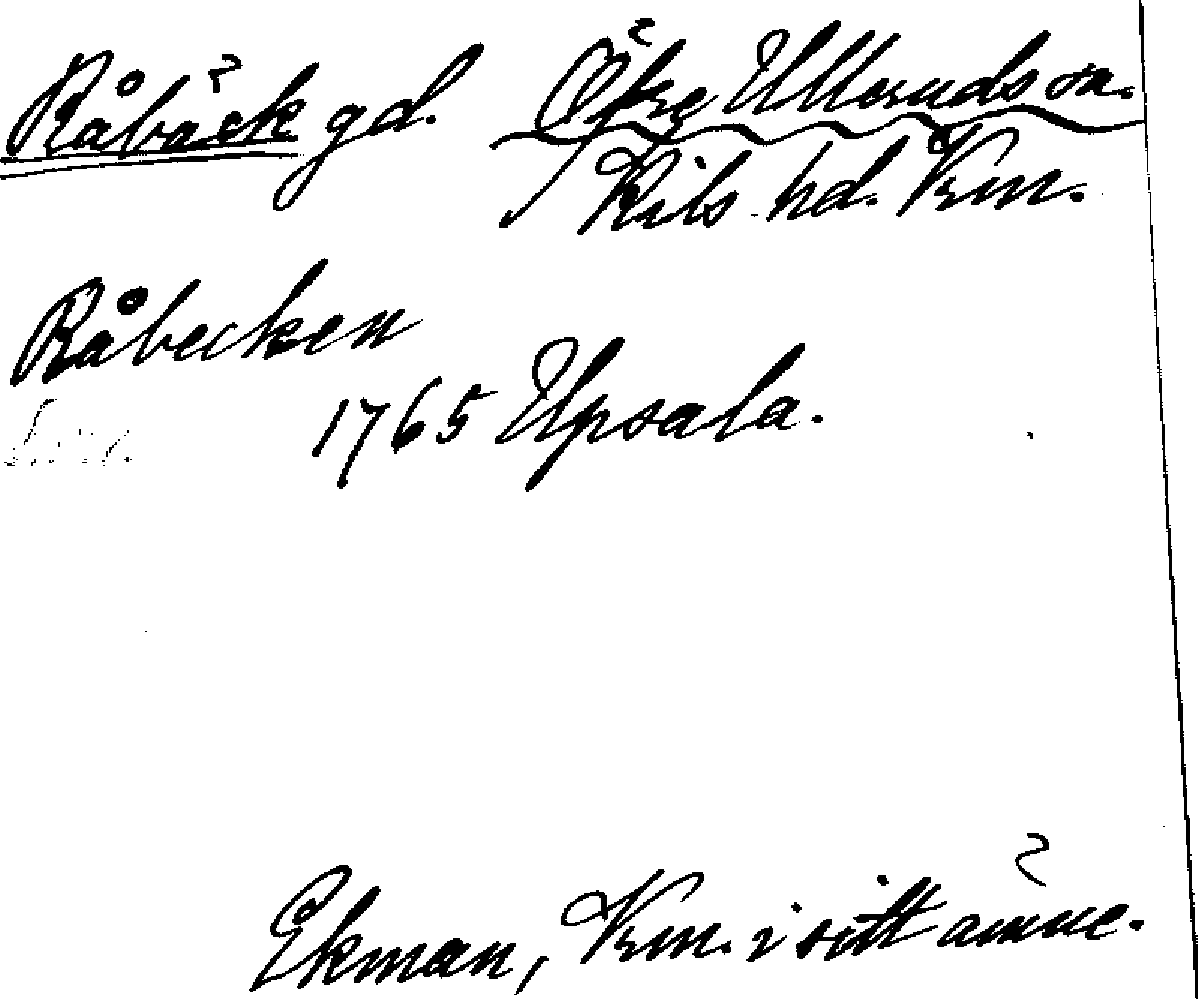 Råbäck gd. Ö. Ulleruds sn.
Kils hd. Vrm.
Råbecken
1765 Upsala.
Ekman, Vrm. i sitt ämne.